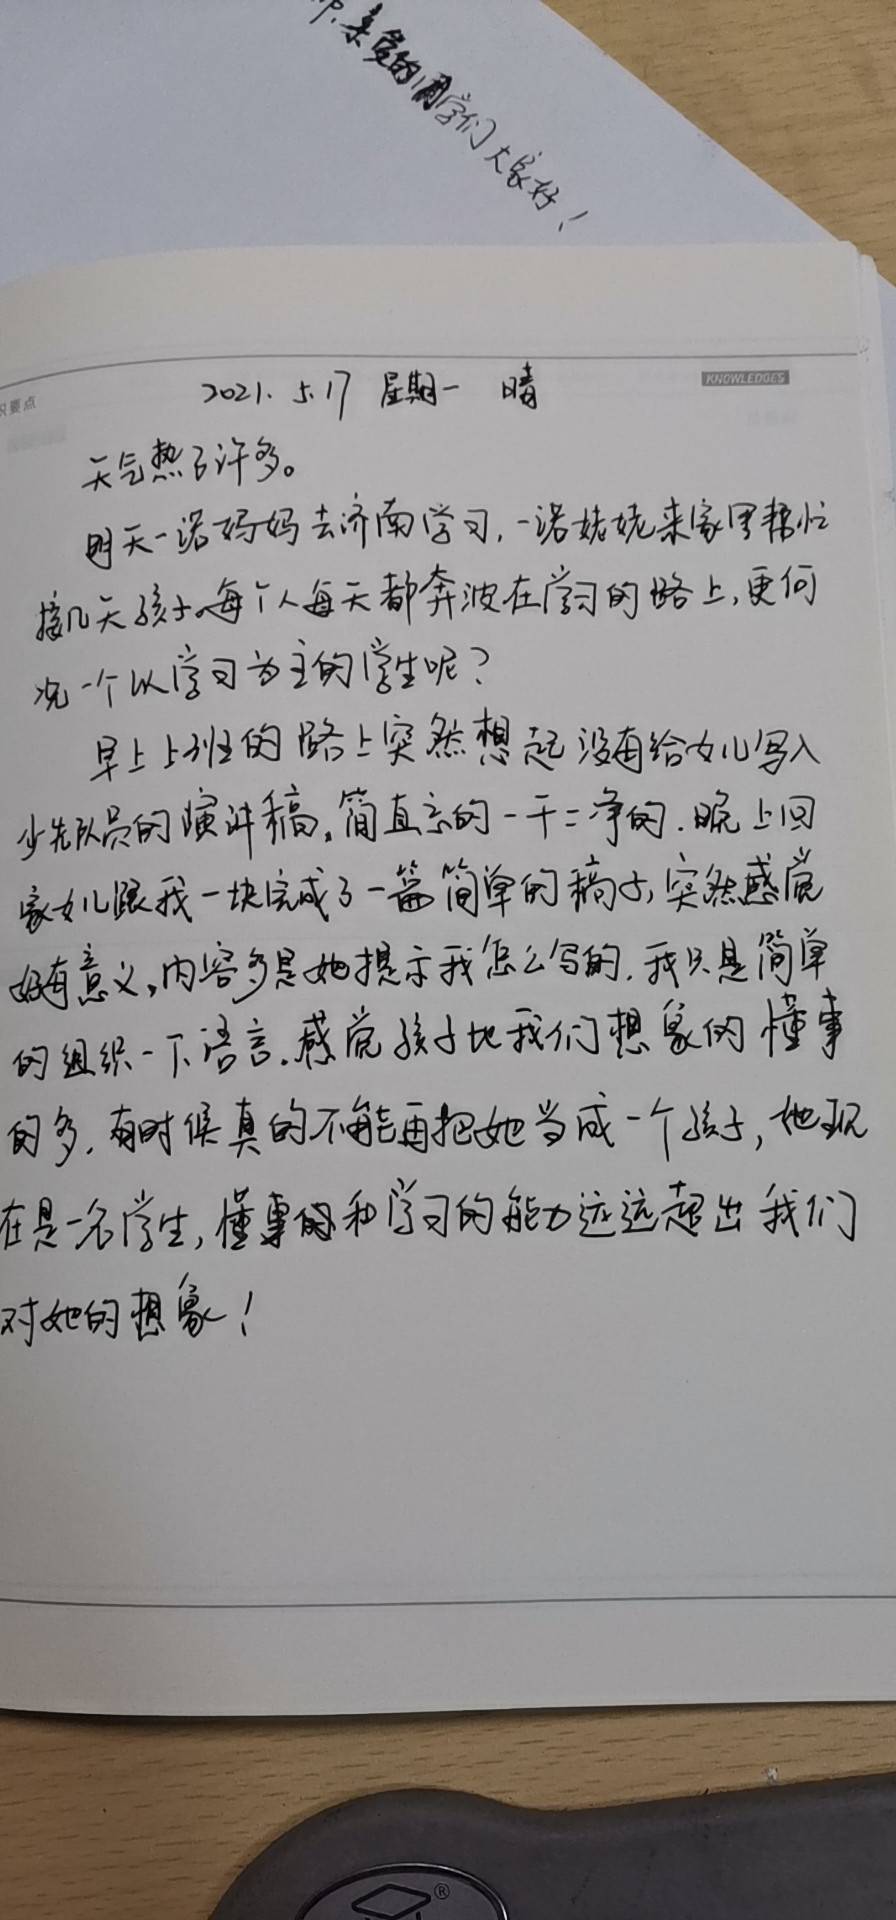 亲爱的同学们大家好！
识要点
KNOWLEDGES
2021.5.17 星期一 晴
天气热了许多。
明天一诺妈妈去济南学习,一诺姥姥来家里帮忙
接几天孩子。每个人每天都奔波在学习的路上,更何
况一个以学习为主的学生呢?
早上上班的路上突然想起没有给女儿写入
少先队员的演讲稿,简直忘的一干二净的.晚上回
家女儿跟我一块完成了一篇简单的稿子,突然感觉
好有意义,内容多是她提示我怎么写的.我只是简单
的组织一下语言.感觉孩子比我们想象的懂事
的多.有时候真的不能再把她当成一个孩子,她现
在是一名学生,懂事的和学习的能力远远超出我们
对她的想象!
®